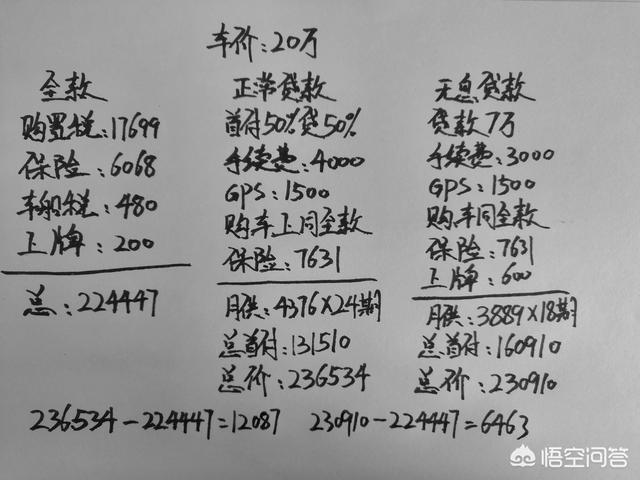 车价：20万
全款
购置税：17699
保险：6068
车船税：480
上牌：200
总：224447
正常贷款
首付50%贷50%
手续费：4000
GPS：1500
购车上同全款
保险：7631
月供：4376×24期
总首付：131510
总价：236534
无息贷款
贷款7万
手续费：3000
GPS：1500
购车同全款
保险：7631
上牌：600
月供：3889×18期
总首付：160910
总价：230910
236534-224447=12087
230910-224447=6463
悟空问答